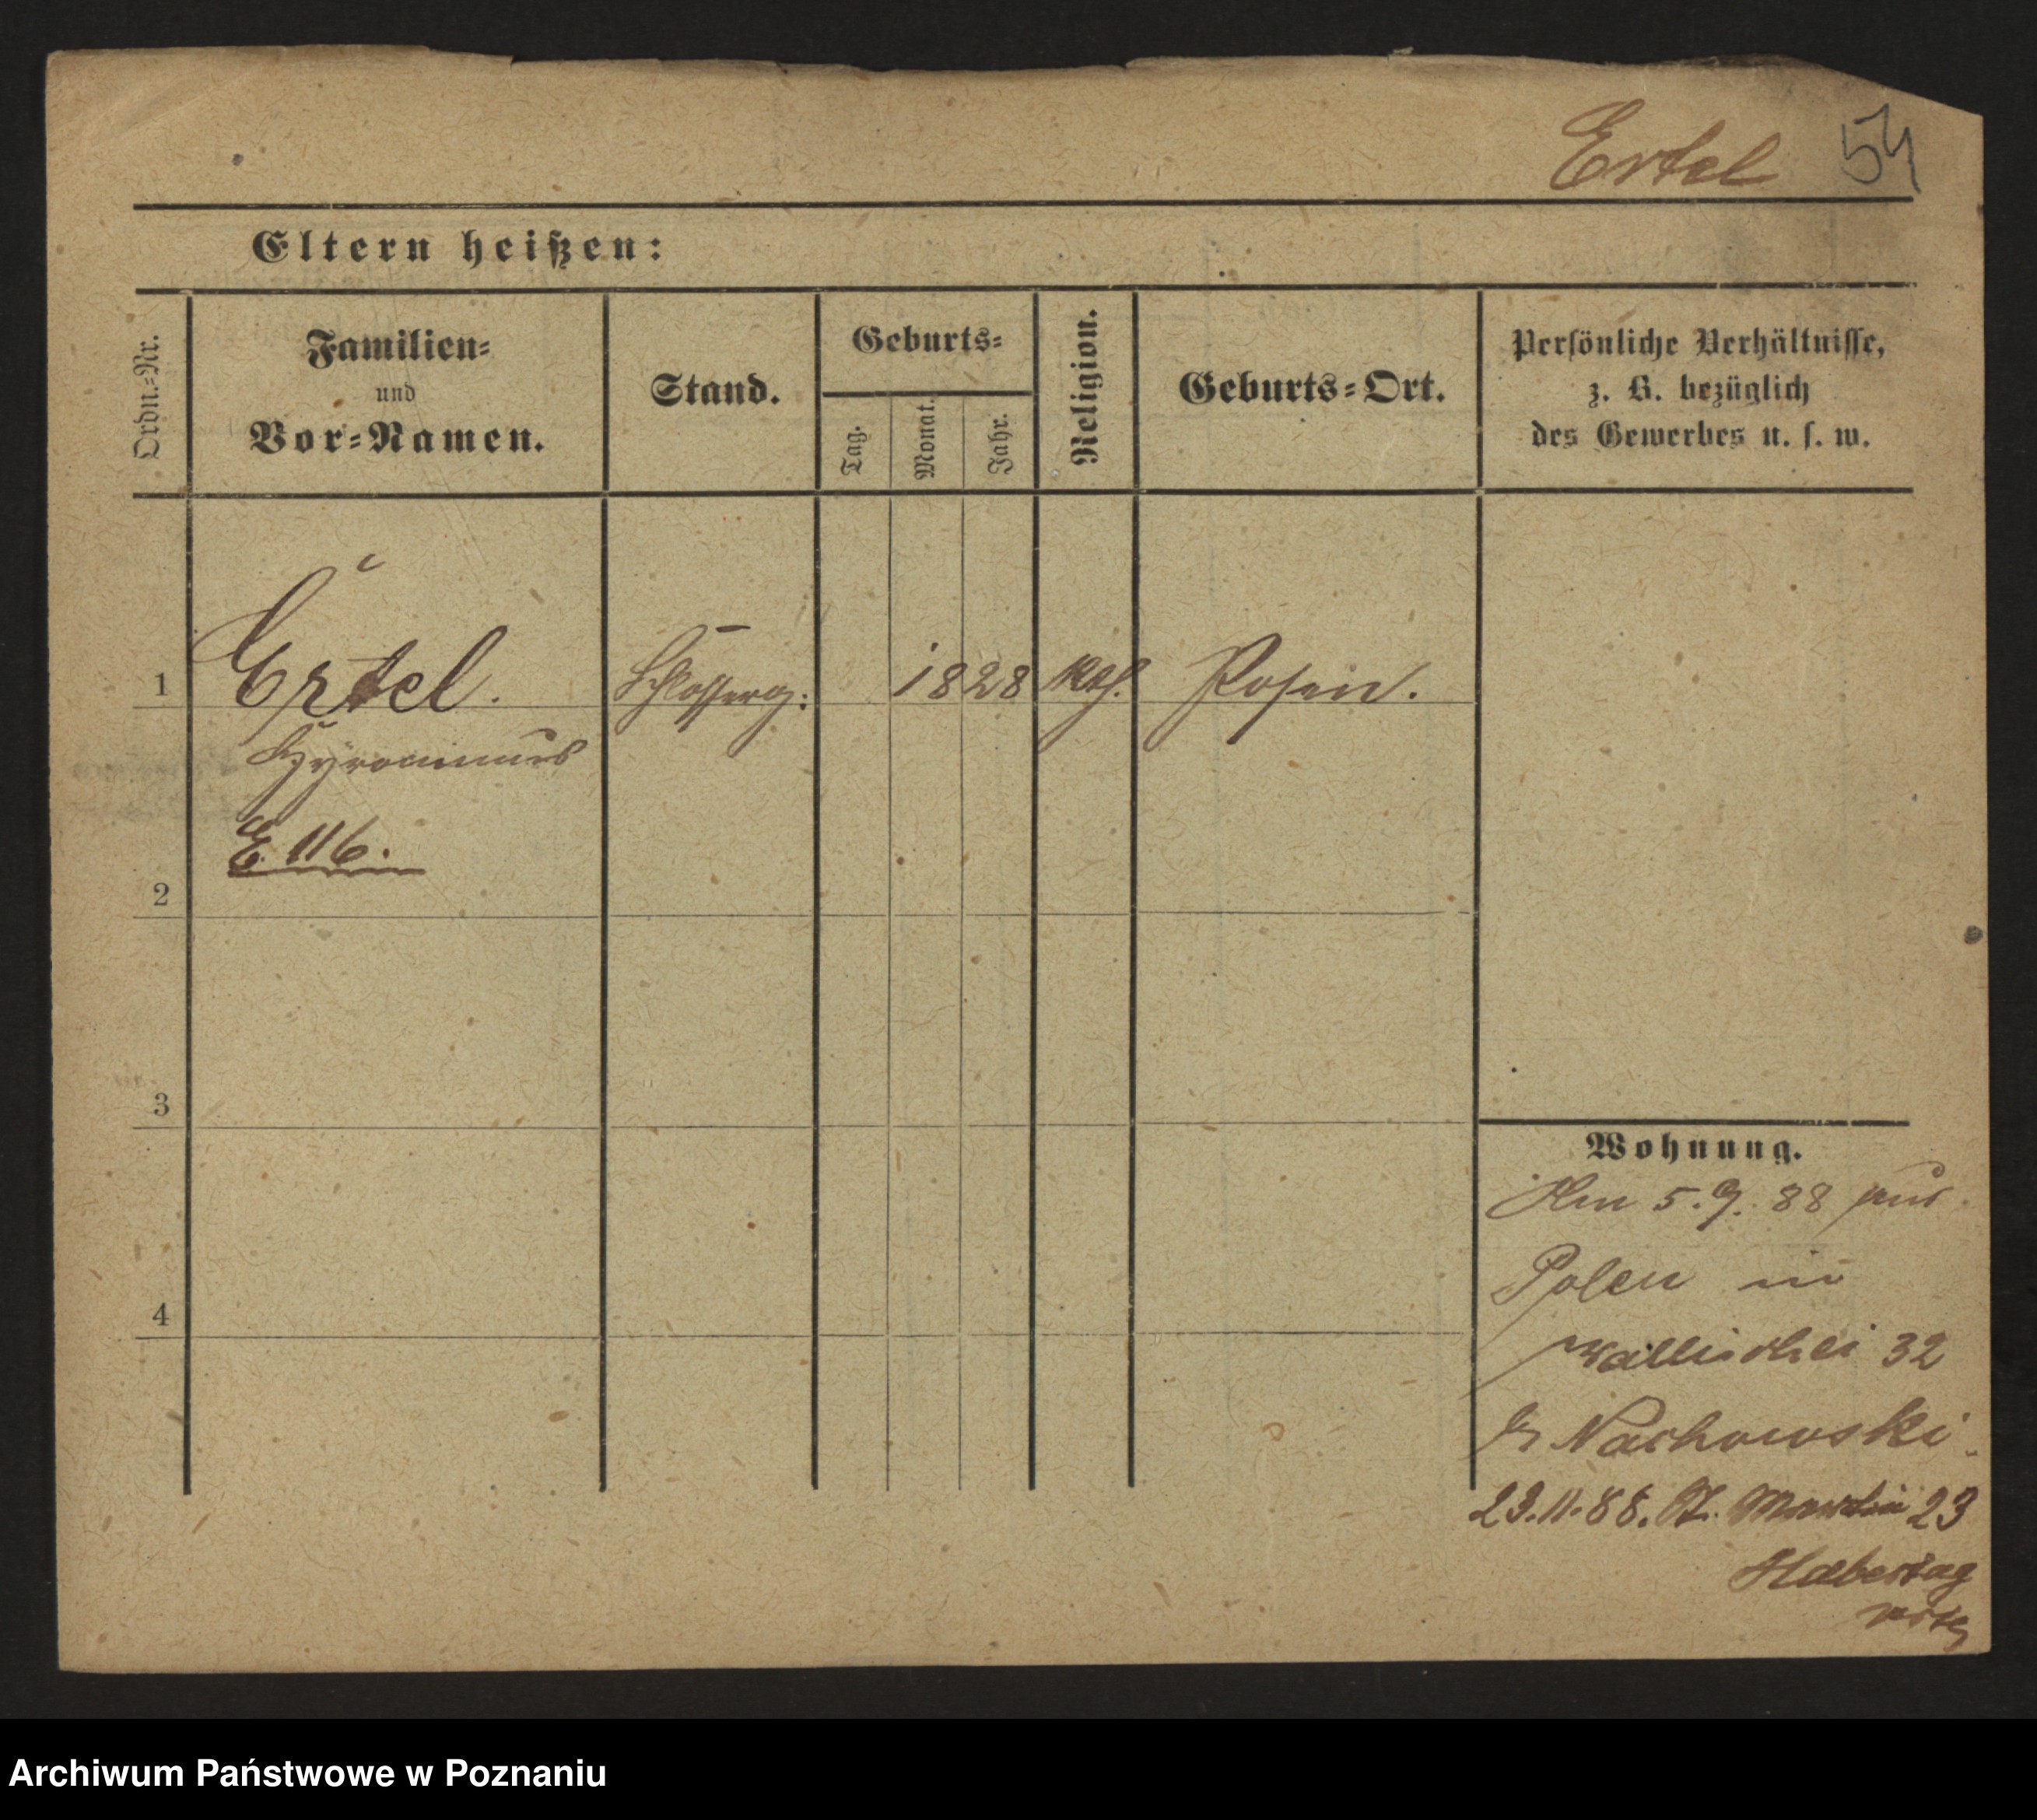 Ertel 54
Eltern heißen:
Ordn.-Nr.
Familien-
und
Vor-Namen.
Stand.
Geburts-
Tag.
Monat.
Jahr.
Religion.
Geburts-Ort.
Persönliche Verhältnisse,
z. B. bezüglich
des Gewerbes u. s. w.
1 Ertel. Schlosserg: 1828 kth. Posen.
Hyronimus
E. 116.
2
3
4
Wohnung.
Am 5.9.88 aus
Polen in
Wallischei 32
b Nachowski
23.11.88. St. Martin 23
Habertag
Archiwum Państwowe w Poznaniu